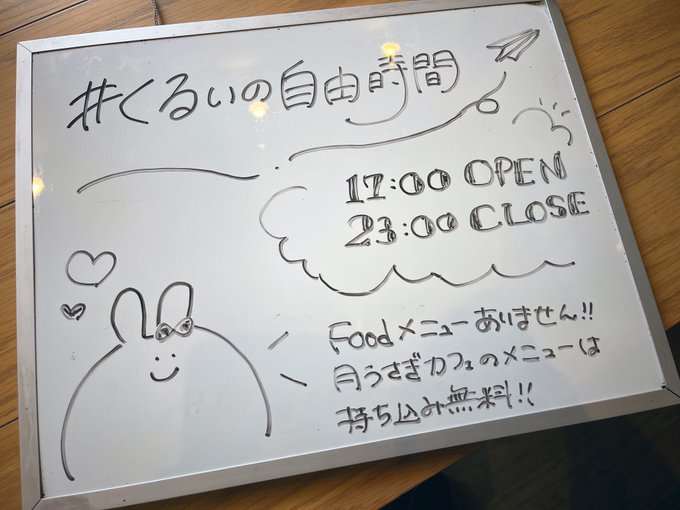 #くるいの自由時間
17:00 OPEN
23:00 CLOSE
Foodメニューありません!!
月うさぎカフェのメニューは
持ち込み無料!!